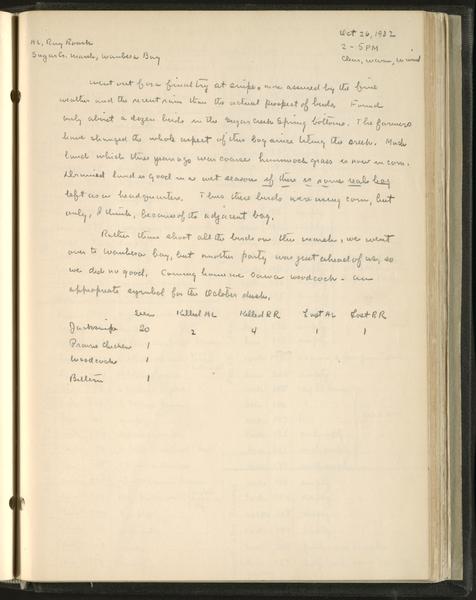 AL, Ray Roark
Oct 26, 1932
2 - 5 PM
Sugar Cr. Marsh, Waubesa Bay
Clear, warm, W wind
Went out for a final try at snipe, more assured by the fine
weather and the recent rain than the actual prospect of birds. Found
only about a dozen birds in the Sugar Creek Spring bottoms. The farmers
have changed the whole aspect of this bog since the creek. Much
land which three years ago was coarse hummock grass is now in corn.
Drained land is good in a wet season if there is some real bog
left as a headquarters. Thus these birds were using corn, but
only, I think, because of the adjacent bog.
Rather than shoot all the birds on this marsh, we went
over to Waubesa bay, but another party was just ahead of us, so
we did no good. Coming home we saw a woodcock - an
appropriate symbol for the October dusk.
Seen Killed AL Killed RR Lost AL Lost RR
Jacksnipe 20 2 4 1 1
Prairie Chicken 1
Woodcock 1
Bittern 1